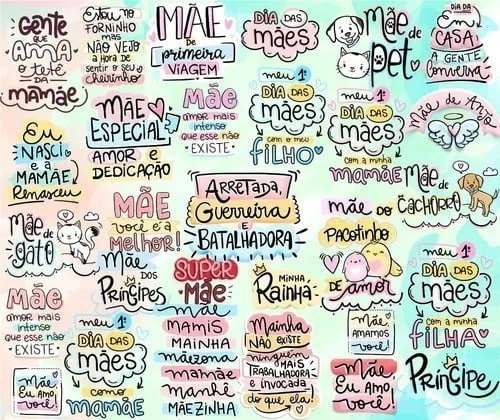 Gente
que
AMA
o tetê
DA
MAMÃE
Estou no
FORNINHO
mas
NÃO VEJO
A HORA DE
sentir o seu
cheirinho
MÃE
DE
primeira
VIAGEM
DIA DAS
mães
Mãe
de
pet
Em
CASA
A GENTE
Conversa
MÃE
ESPECIAL
AMOR E
DEDICAÇÃO
Mãe
amor mais
intenso
que esse não
EXISTE
meu 1º
DIA DAS
mães
com o meu
filho
meu 1º
DIA DAS
mães
com a minha
mamãe
Mãe de Anjo
Eu
NASCI
e a
MAMÃE
Renasceu
MÃE
você é a
melhor!
ARRETADA,
Guerreira
E
BATALHADORA
mãe do
Pacotinho
DE amor
Mãe de
CACHORRO
Mãe
de
gato
Mãe
DOS
Príncipes
SUPER
Mãe
MINHA
Rainha
meu 1º
DIA DAS
mães
com a minha
FILHA
Mãe
amor mais
intenso
que esse não
EXISTE
meu 1º
DIA DAS
mães
como
mamãe
Mãe
MAMIS
MAINHA
mãezona
mamãe
manhê
MÃEZINHA
Mainha
NÃO EXISTE
ninguém
MAIS
TRABALHADORA
e invocada
do que ela!
MÃE
AMAMOS
você!
Mãe
Eu Amo
você!
Mãe
Eu Amo,
você!
Príncipe